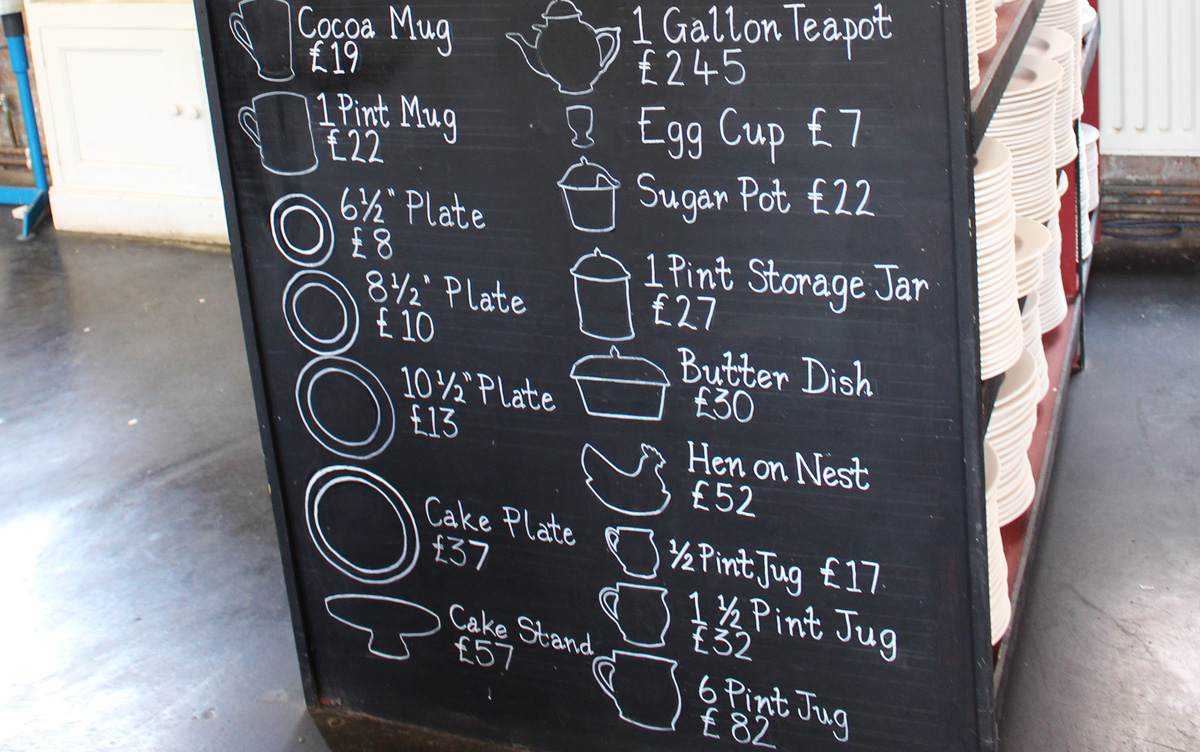 Cocoa Mug
£19
1 Pint Mug
£22
6½" Plate
£8
8½" Plate
£10
10½" Plate
£13
Cake Plate
£37
Cake Stand
£57
1 Gallon Teapot
£245
Egg Cup £7
Sugar Pot £22
1 Pint Storage Jar
£27
Butter Dish
£30
Hen on Nest
£52
½ Pint Jug £17
1 ½ Pint Jug
£32
6 Pint Jug
£82